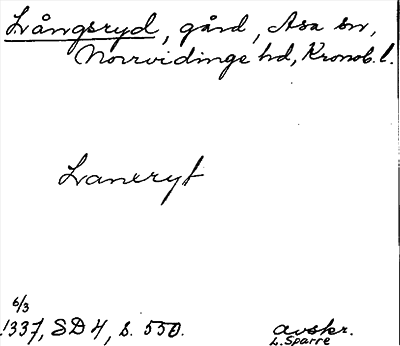 Svångsryd, gård, Asa sn,
Norrvidinge hd, Kronob. l.
Svaneryt
6/3
1337, SD 4, s. 550.
avskr.
L. Sparre